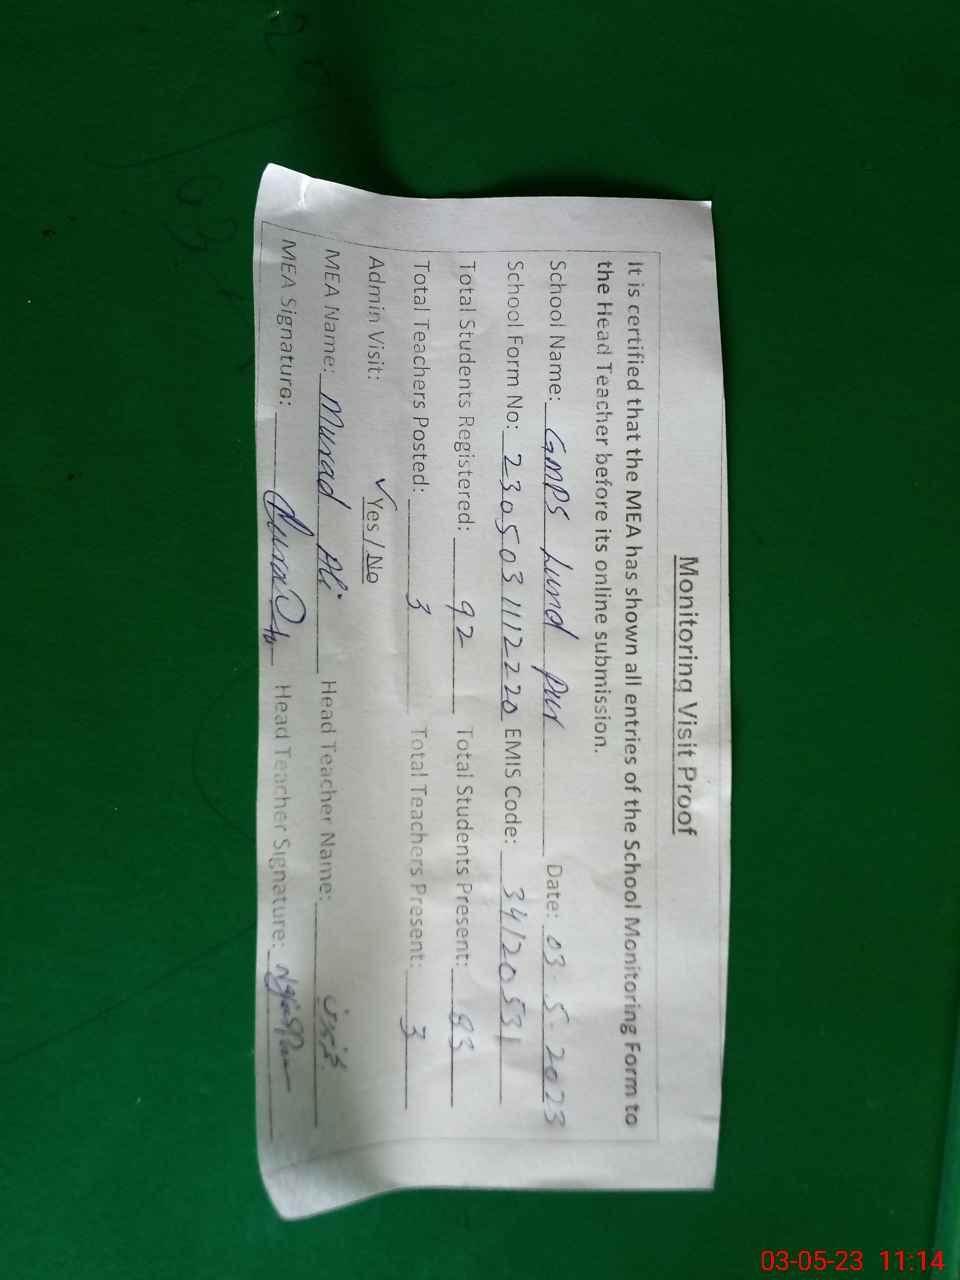 Monitoring Visit Proof
It is certified that the MEA has shown all entries of the School Monitoring Form to
the Head Teacher before its online submission.
School Name: GMPS Lund Pur Date: 03-5-2023
School Form No: 2305031112220 EMIS Code: 34120531
Total Students Registered: 92 Total Students Present: 83
Total Teachers Posted: 3 Total Teachers Present: 3
Admin Visit: ✓Yes / No
MEA Name: Murad Ali Head Teacher Name:
MEA Signature: Head Teacher Signature:
03-05-23 11:14